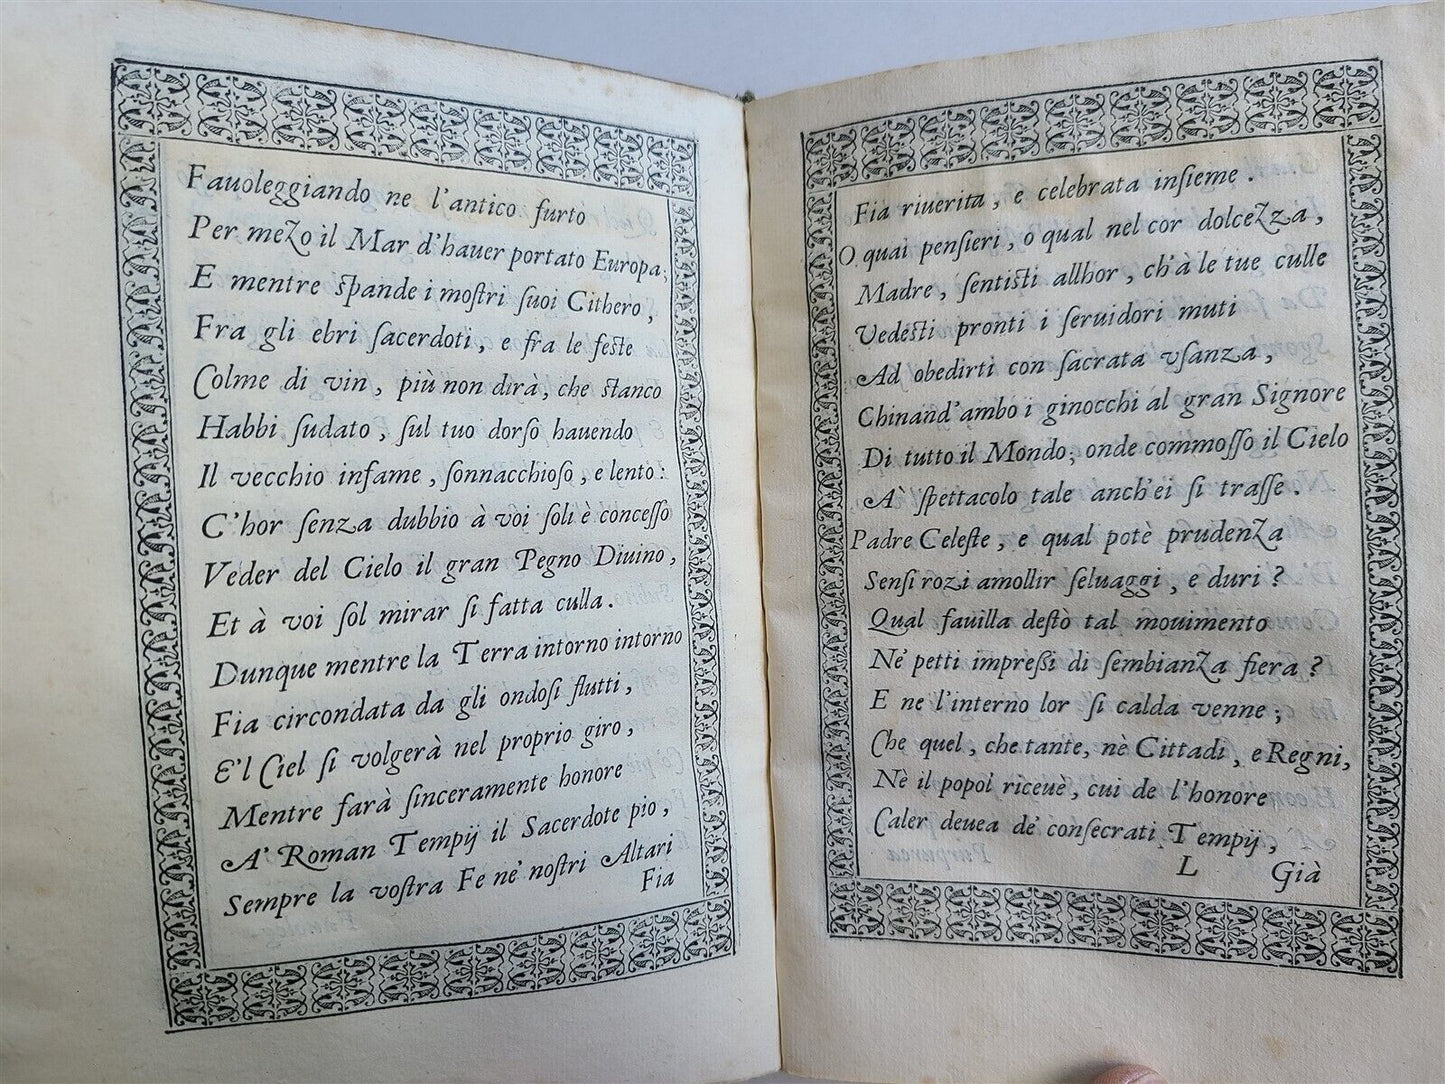 Fauoleggiando ne l'antico furto
Per mezo il Mar d'hauer portato Europa;
E mentre ſpande i moſtri ſuoi Cithero,
Fra gli ebri ſacerdoti, e fra le feſte
Colme di vin, più non dirà, che ſtanco
Habbi ſudato, ſul tuo dorſo hauendo
Il vecchio infame, ſonnacchioſo, e lento:
C'hor ſenza dubbio à voi ſoli è conceſſo
Veder del Cielo il gran Pegno Diuino,
Et à voi ſol mirar ſi fatta culla.
Dunque mentre la Terra intorno intorno
Fia circondata da gli ondoſi flutti,
E'l Ciel ſi volgerà nel proprio giro,
Mentre farà ſinceramente honore
A' Roman Tempij il Sacerdote pio,
Sempre la voſtra Fe ne' noſtri Altari
Fia
Fia riuerita, e celebrata inſieme.
O quai penſieri, o qual nel cor dolcezza,
Madre, ſentiſti allhor, ch'à le tue culle
Vedeſti pronti i ſeruidori muti
Ad obedirti con ſacrata vſanza,
Chinand'ambo i ginocchi al gran Signore
Di tutto il Mondo; onde commoſſo il Cielo
A' ſpettacolo tale anch'ei ſi traſſe.
Padre Celeſte, e qual potè prudenza
Senſi rozi amollir ſeluaggi, e duri?
Qual fauilla deſtò tal mouimento
Ne' petti impreſſi di ſembianza fiera?
E ne l'interno lor ſi calda venne;
Che quel, che tante, nè Cittadi, e Regni,
Nè il popol riceuè, cui de l'honore
Caler deuea de' conſecrati Tempij,
L Già